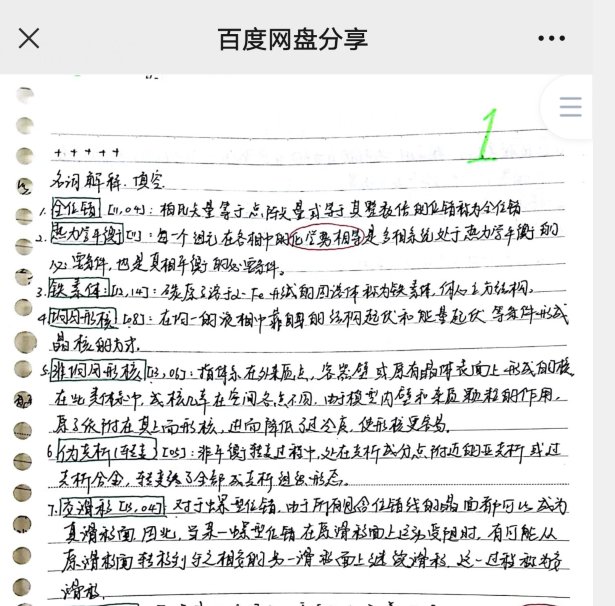 百度网盘分享
1
+ + + + +
名词解释、填空
1. 全位错 [11,04]：柏氏矢量等于点阵矢量或等于其整数倍的位错称为全位错
2. 热力学平衡 [11]：每一个组元在各相中的化学势相等是多相系统处于热力学平衡的
必要条件，也是真相平衡的必要条件。
3. 铁素体：[12,14]：碳原子溶于α-Fe形成的固溶体称为铁素体，体心立方结构。
4. 均匀形核 [08]：在均一的液相中靠自身的结构起伏和能量起伏等条件形成
晶核的方式.
5. 非均匀形核 [13,06]：指体系在外来质点，容器壁或原有晶体表面上形成的核
在此类体系中，或核几率在空间各点不同，由于模型内壁和杂质颗粒的作用，
原子依附在其上面形核，进而降低了过冷度，使形核更容易。
6. 伪共析(转变) [05]：非平衡转变过程中，处在共析成分点附近的亚共析或过
共析合金，转变终了全部成共析组织形态。
7. 交滑移 [15,04] 对于螺型位错，由于所有包含位错线的晶面都可以成为
其滑移面，因此，当某一螺型位错在原滑移面上运动受阻时，有可能从
原滑移面转移到与之相交的另一滑移面上继续滑移，这一过程称为交
滑移.